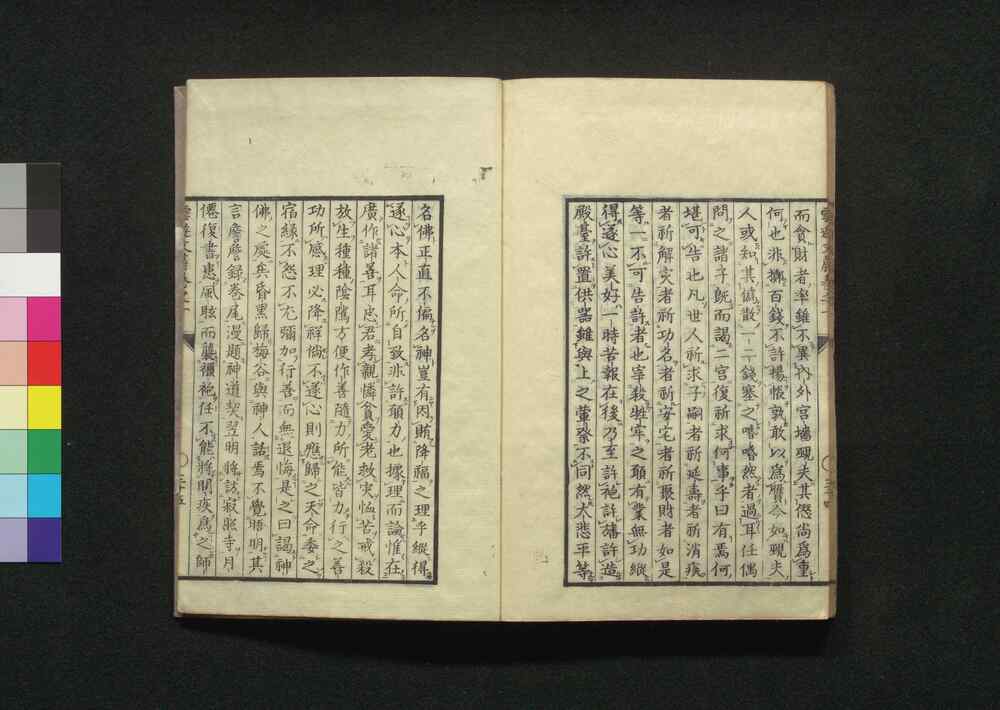 而貪財者率雖不異內外宮墻覡夫其儅尙爲重
何也非擲百錢不許揚帳孰敢以爲贋今如覡夫
人或知其誠散一二錢塞之嗜嗜然者過耳任偶
問之諸子旣而謁二宮復祈求何事乎曰有焉何
堪可告也凡世人所求子嗣者祈延壽者祈消疾
者祈解災者祈功名者祈安宅者祈聚財者如是
等一不可告許者也宰殺牲牢之願有業無功縱
得遂心美好一時苦報在後乃至許袍許旛許造
殿臺許置供器雖與上之葷祭不同然大悲平等
名佛正直不偏名神豈有因賄降福之理乎縱得
遂心本人命所自致非許願力也據理而論惟在
廣作諸善耳忠君孝親憐貧愛老救災恤苦戒殺
放生種種陰隲方便作善隨力所能皆力行之善
功所感理必降祥倘不遂心則應歸之天命委之
宿緣不怨不尤彌加行善而無退悔是之曰謁神
佛之處兵昏黑歸梅谷與神人話焉不覺晤明其
言詹詹錄卷尾漫題神道契翌明將訪寂照寺月
僊復書患風眩而襲襪袍任不能將閑疾爲之師